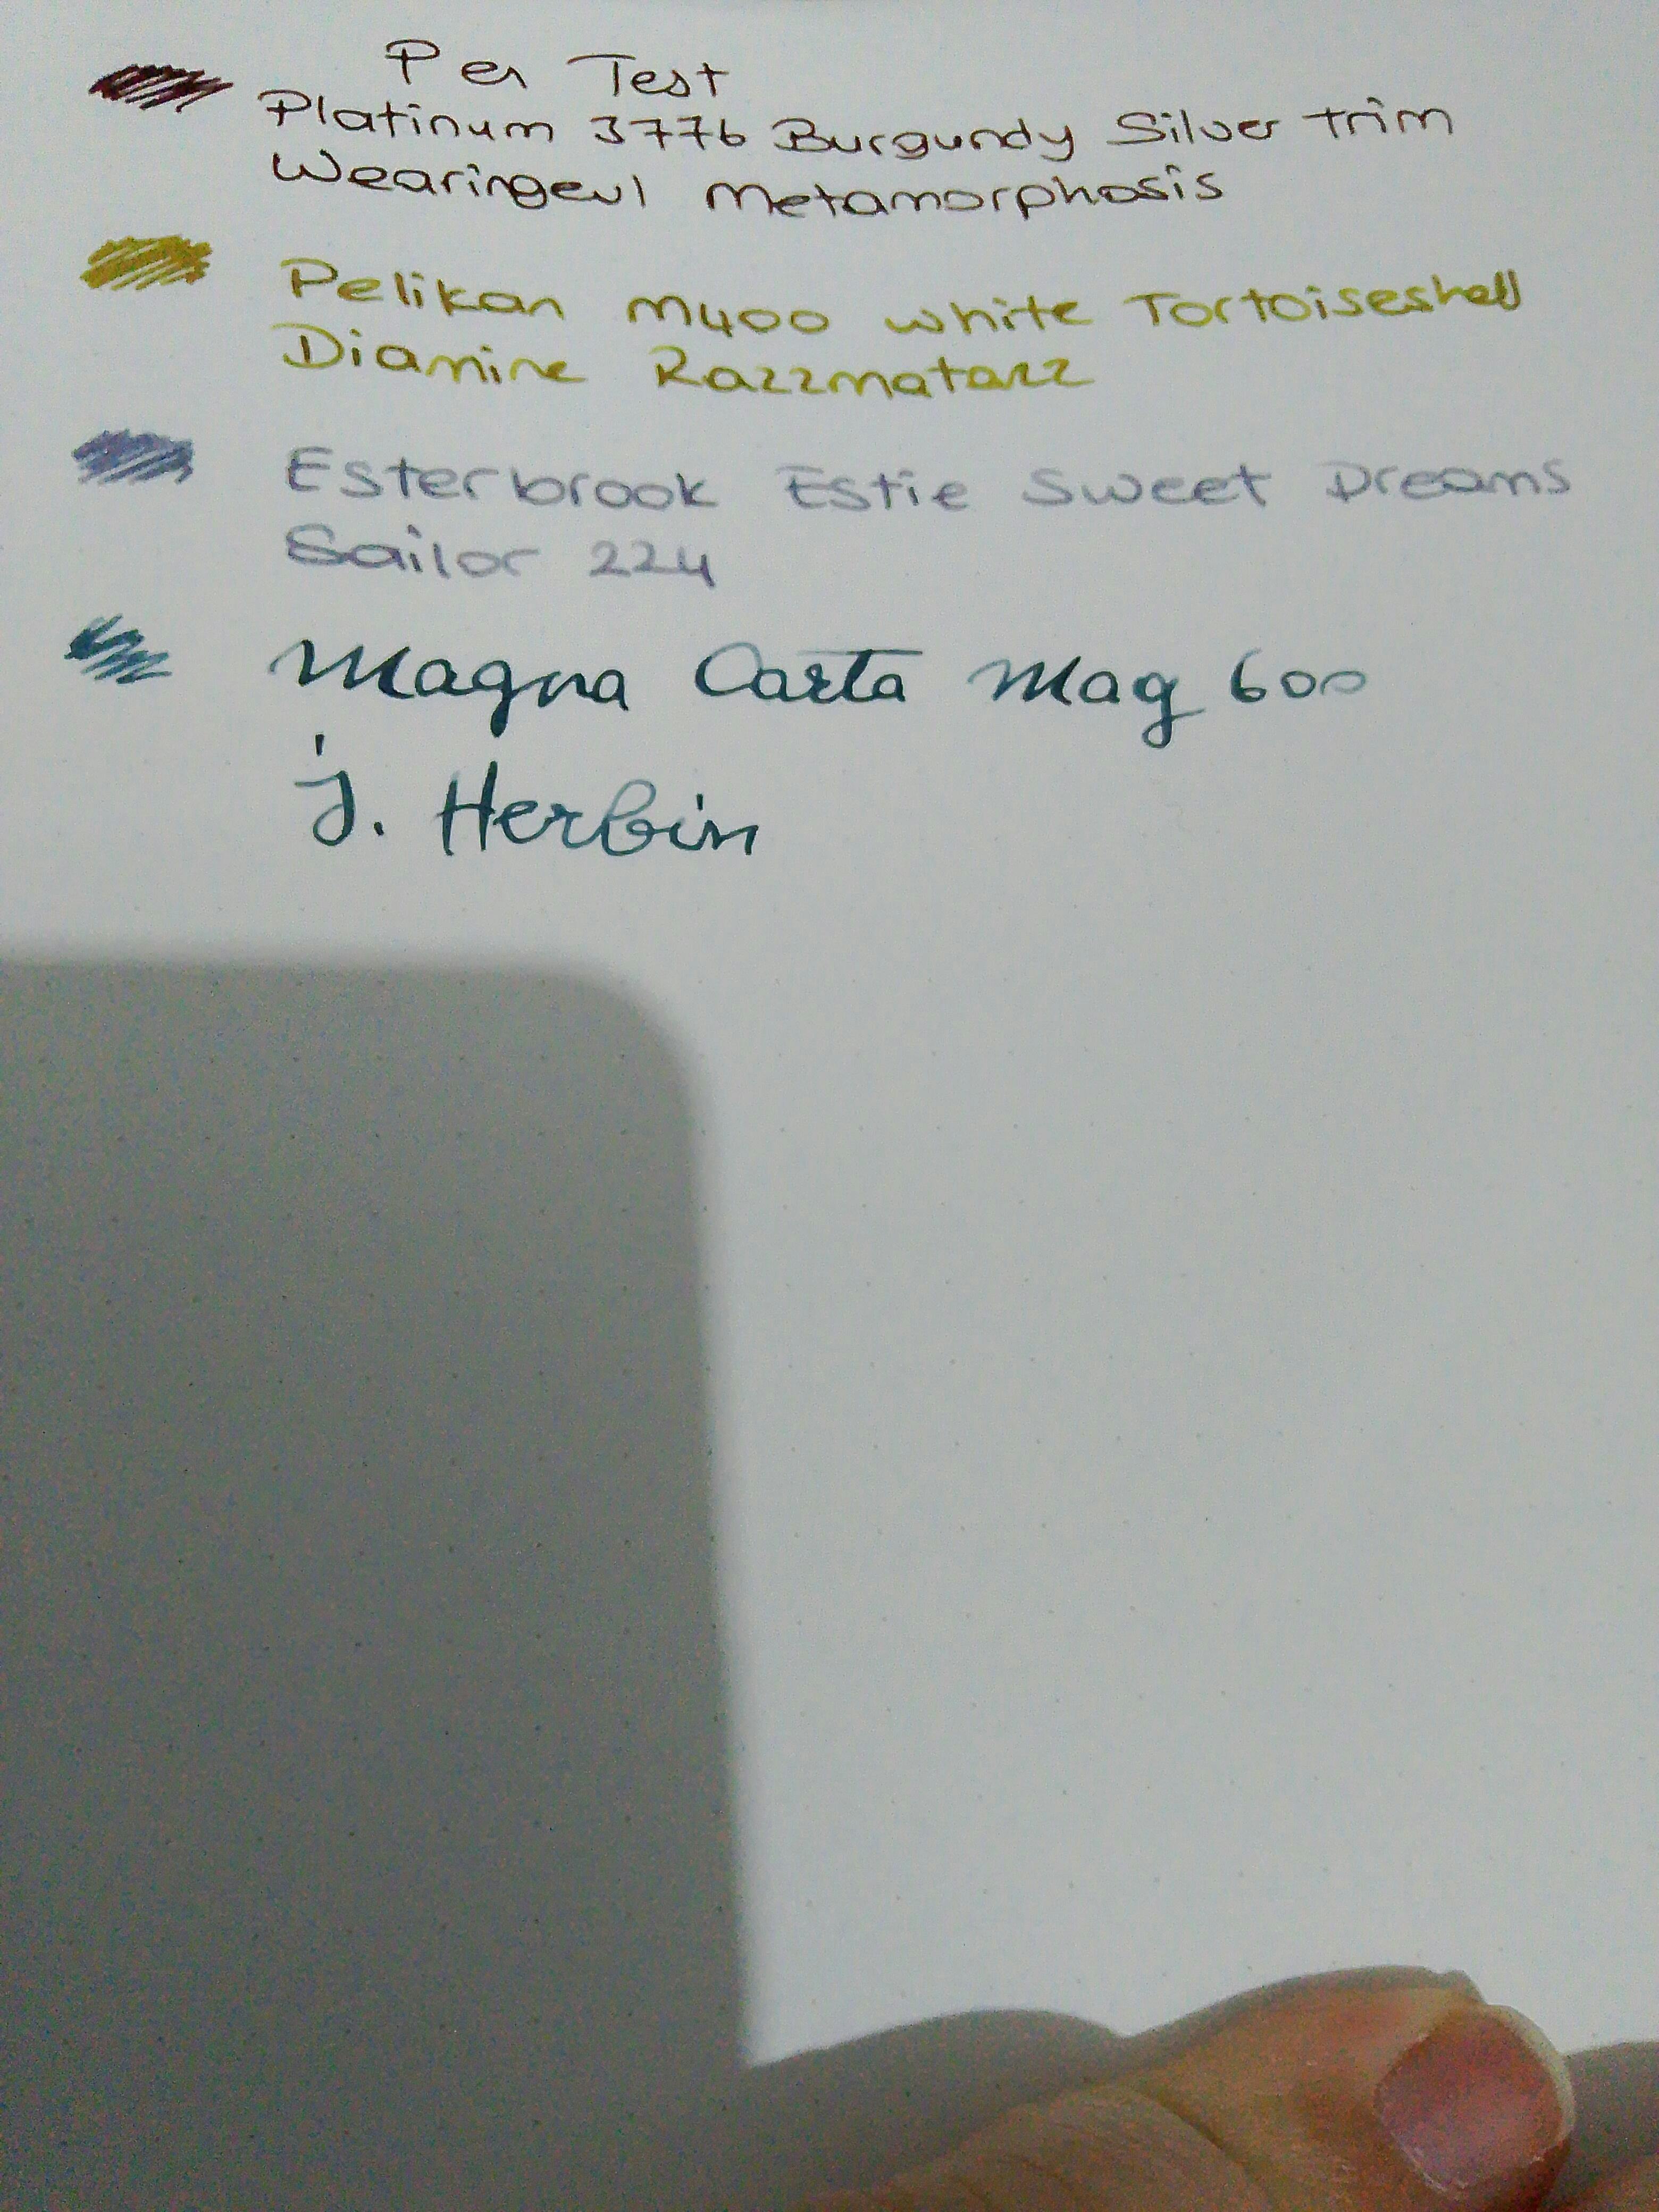 Pen Test
Platinum 3776 Burgundy Silver trim
Wearingeul Metamorphosis
Pelikan M400 white Tortoiseshell
Diamine Razzmatazz
Esterbrook Estie Sweet Dreams
Sailor 224
Magna Carta Mag 600
J. Herbin